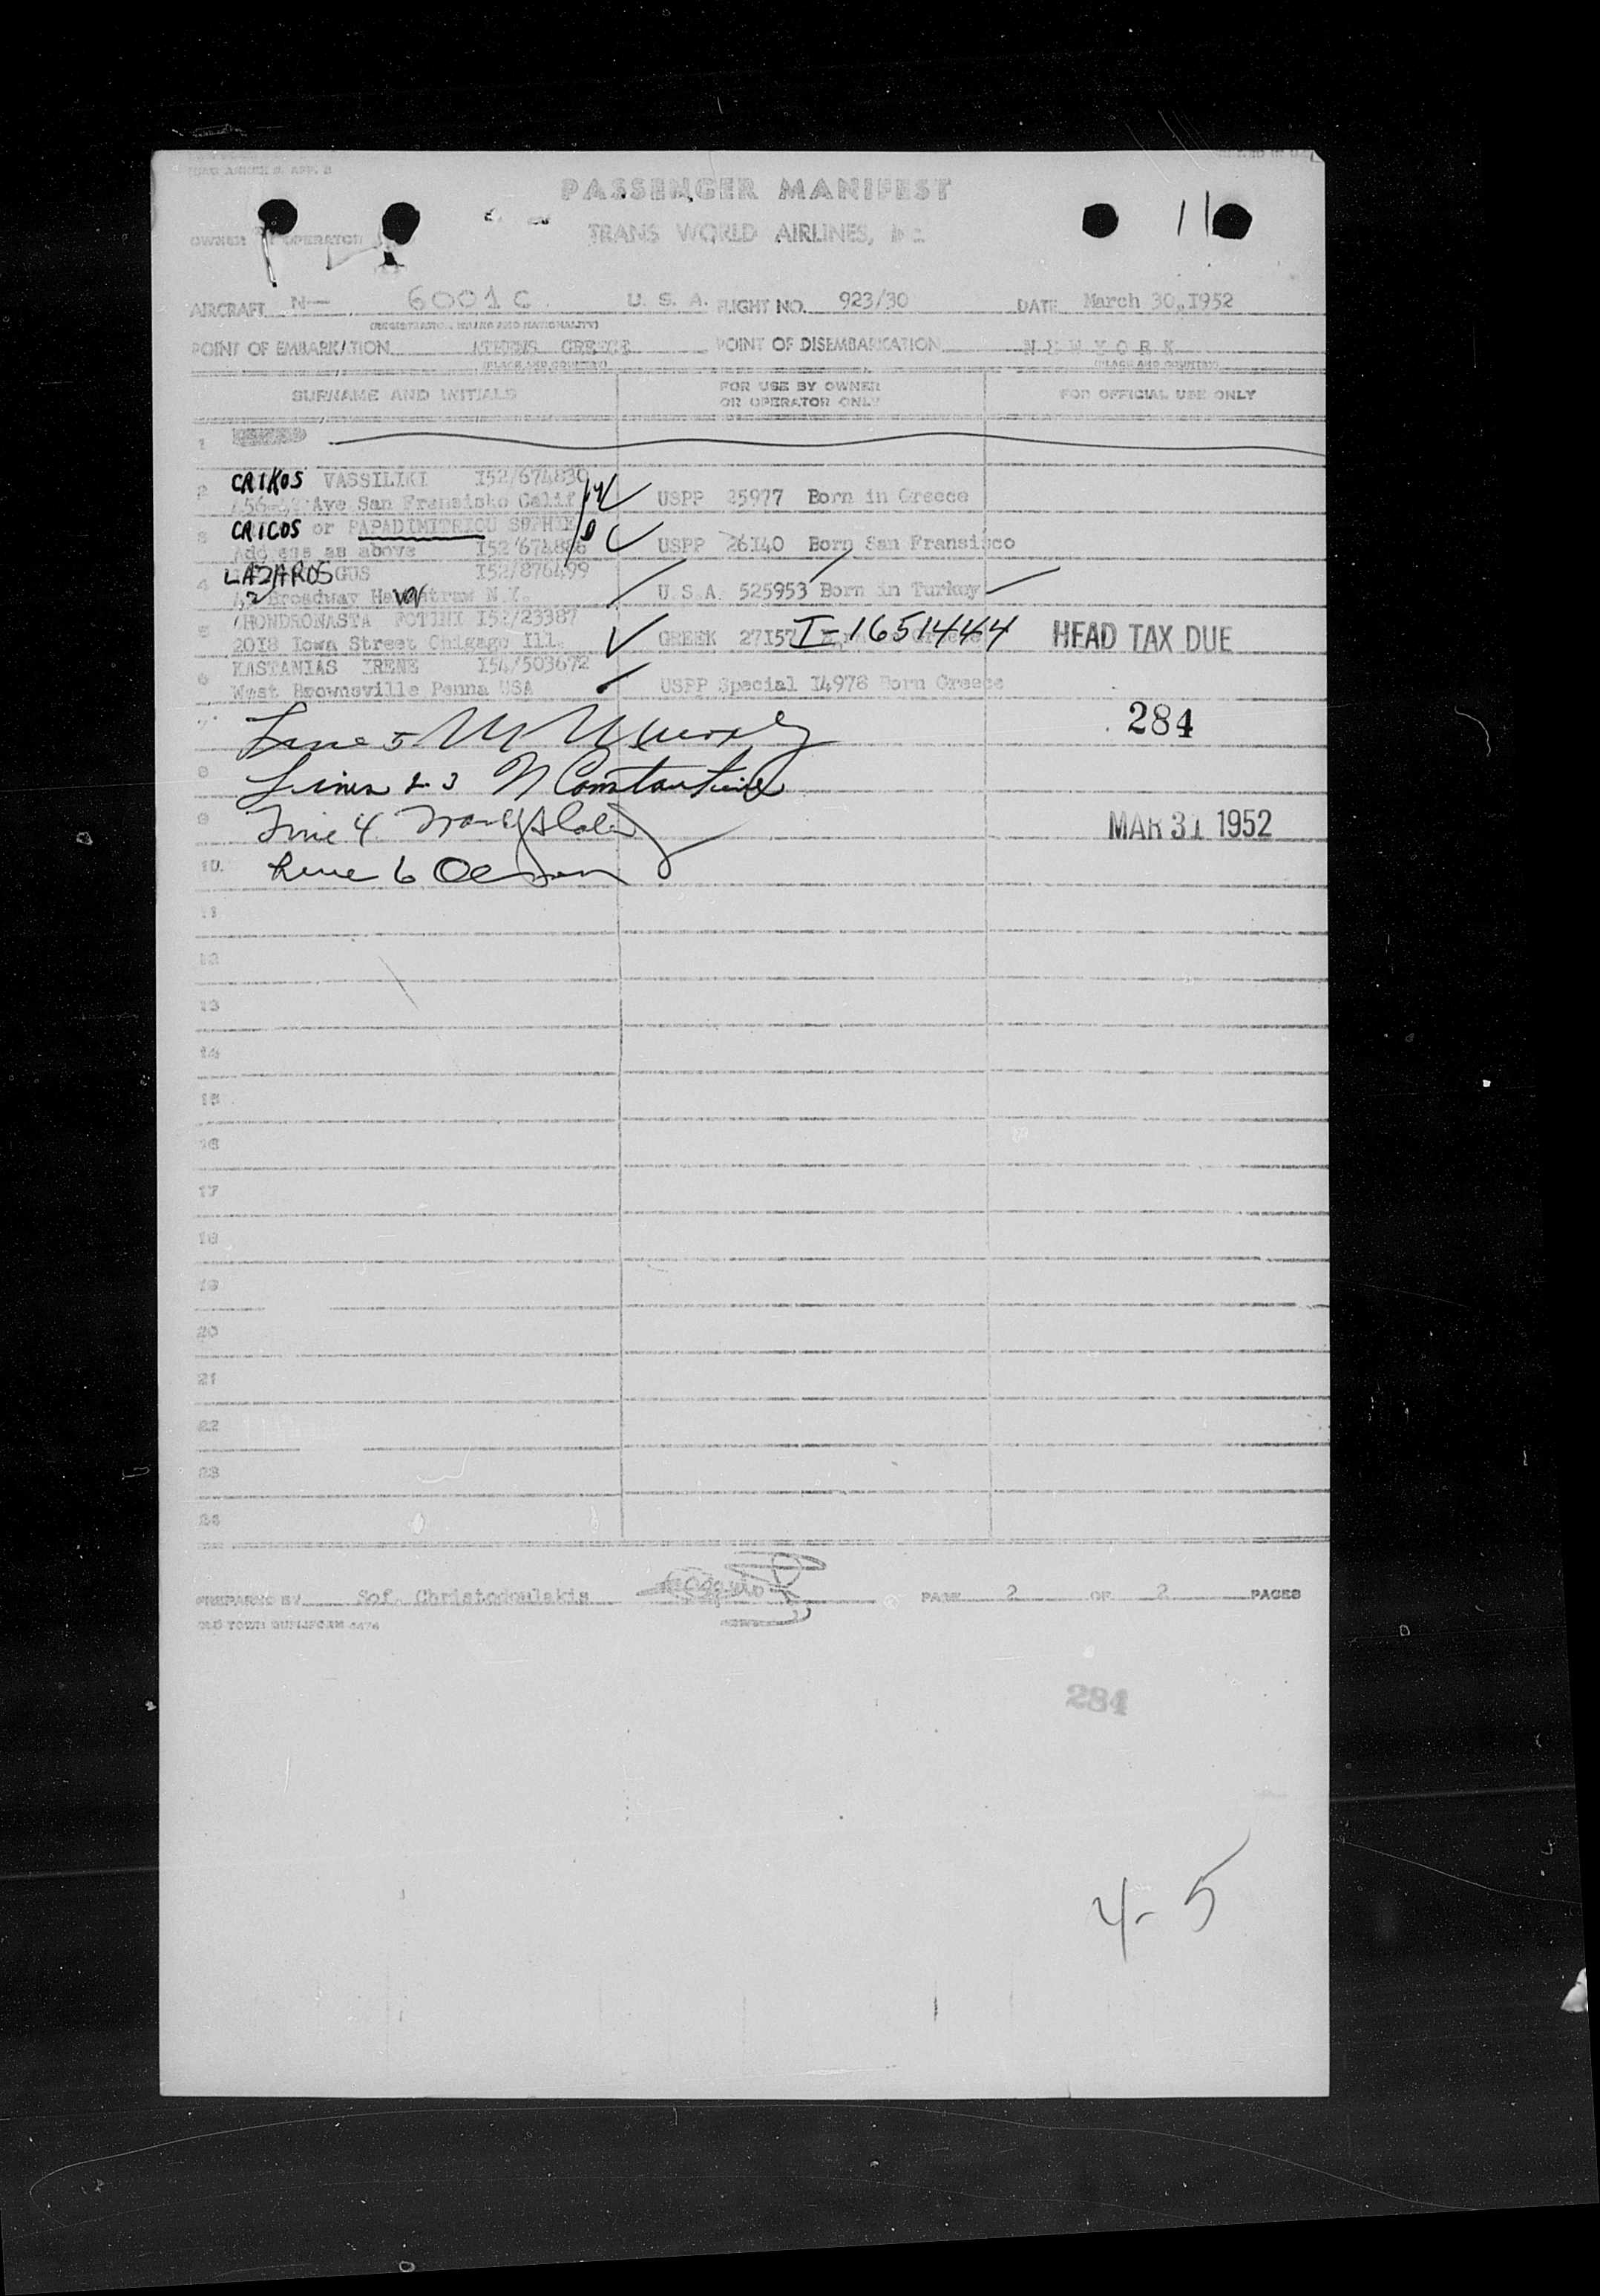 PASSENGER MANIFEST
116
OWNER OR OPERATOR
TRANS WORLD AIRLINES,
AIRCRAFT N- 6001C. U. S. A. FLIGHT NO. 923/30 DATE March 30,1952
(REGISTRATION MARKS AND NATIONALITY)
POINT OF EMBARKATION ATHENS GREECE POINT OF DISEMBARKATION NEW YORK
(PLACE AND COUNTRY) (PLACE AND COUNTRY)
SURNAME AND INITIALS
FOR USE BY OWNER
OR OPERATOR ONLY
FOR OFFICIAL USE ONLY
1
2 CRIKOS VASSILIKI I52/674830
Ave San Fransisko Calif USPP 25977 Born in Greece
3 CRICOS or PAPADIMITRIOU SOPHIE
Address as above I52/674886 USPP 26140 Born San Fransisco
4 LAZAROS GUS I52/876499
Broadway N.Y. U.S.A. 525953 Born in Turkey
5 CHONDRONASTA FOTINI I52/23387
2018 Iowa Street Chigago Ill. GREEK 27157 I-1651444 HEAD TAX DUE
6 KASTANIAS IRENE I54/503672
West Brownsville Penna USA USPP Special I4978 Born Greece
7 Line 5 284
8 Lines 2-3 N Constantine
9 Line 4 MAR 31 1952
10 Line 6
11
12
13
14
15
16
17
18
19
20
21
22
23
24
PREPARED BY Sof. Christodoulakis PAGE 2 OF 2 PAGES
284
4-5